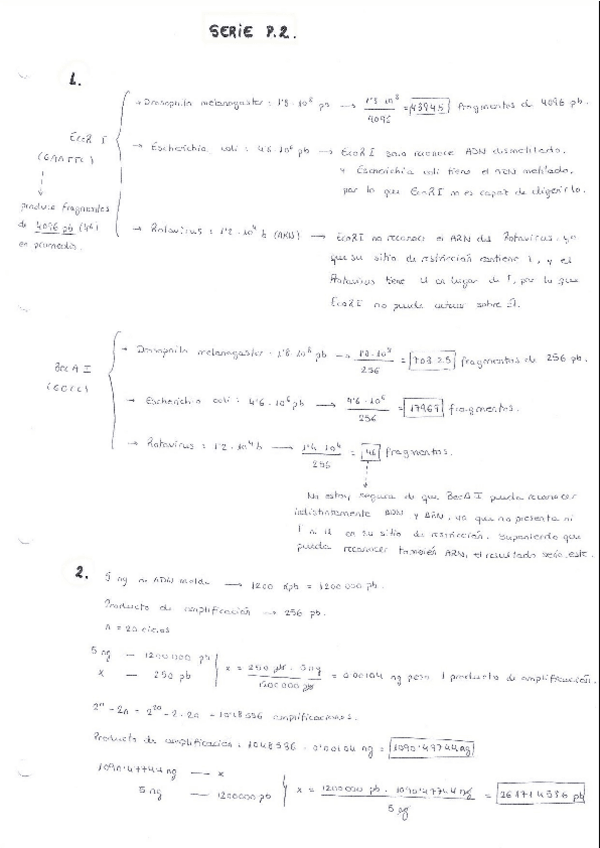 SERIE P.2.
1.
EcoR I
(GAATTC)
produce fragmentos
de 4096 pb (4⁶)
en promedio.
→ Drosophila melanogaster : 1'8 · 10⁸ pb → 1'8 · 10⁸ / 4096 = 43945 fragmentos de 4096 pb.
→ Escherichia coli : 4'6 · 10⁶ pb → EcoR I solo reconoce ADN dismetilado,
y Escherichia coli tiene el ADN metilado,
por lo que EcoRI no es capaz de digerirlo.
→ Rotavirus : 1'2 · 10⁴ b (ARN) → EcoRI no reconoce el ARN del Rotavirus, ya
que su sitio de restricción contiene T, y el
Rotavirus tiene U en lugar de T, por lo que
EcoRI no puede actuar sobre él.
→ Drosophila melanogaster : 1'8 · 10⁸ pb → 1'8 · 10⁸ / 256 = 703125 fragmentos de 256 pb.
→ Escherichia coli : 4'6 · 10⁶ pb → 4'6 · 10⁶ / 256 = 17969 fragmentos.
→ Rotavirus : 1'2 · 10⁴ b → / 256 = 46 fragmentos.
No estoy segura de que puede reconocer
indistintamente ADN y ARN, ya que no presenta ni
T ni U en su sitio de restricción. Suponiendo que
pueda reconocer también ARN, el resultado sería este.
2. 5 ng de ADN molde → 1200 Kpb = 1200 000 pb.
Producto de amplificación → 250 pb.
n = 20 ciclos
5 ng — 1200 000 pb
x — 250 pb
x = 250 pb · 5 ng / 1200 000 pb = 0'00104 ng pesa 1 producto de amplificación.
2ⁿ - 2n = 2²⁰ - 2 · 20 = 1048536 amplificaciones.
Producto de amplificación : 1048536 · 0'00104 ng = 1090'47744 ng
1090'47744 ng — x
5 ng — 1200000 pb
x = 1200 000 pb · 1090'47744 ng / 5 ng = 261714586 pb